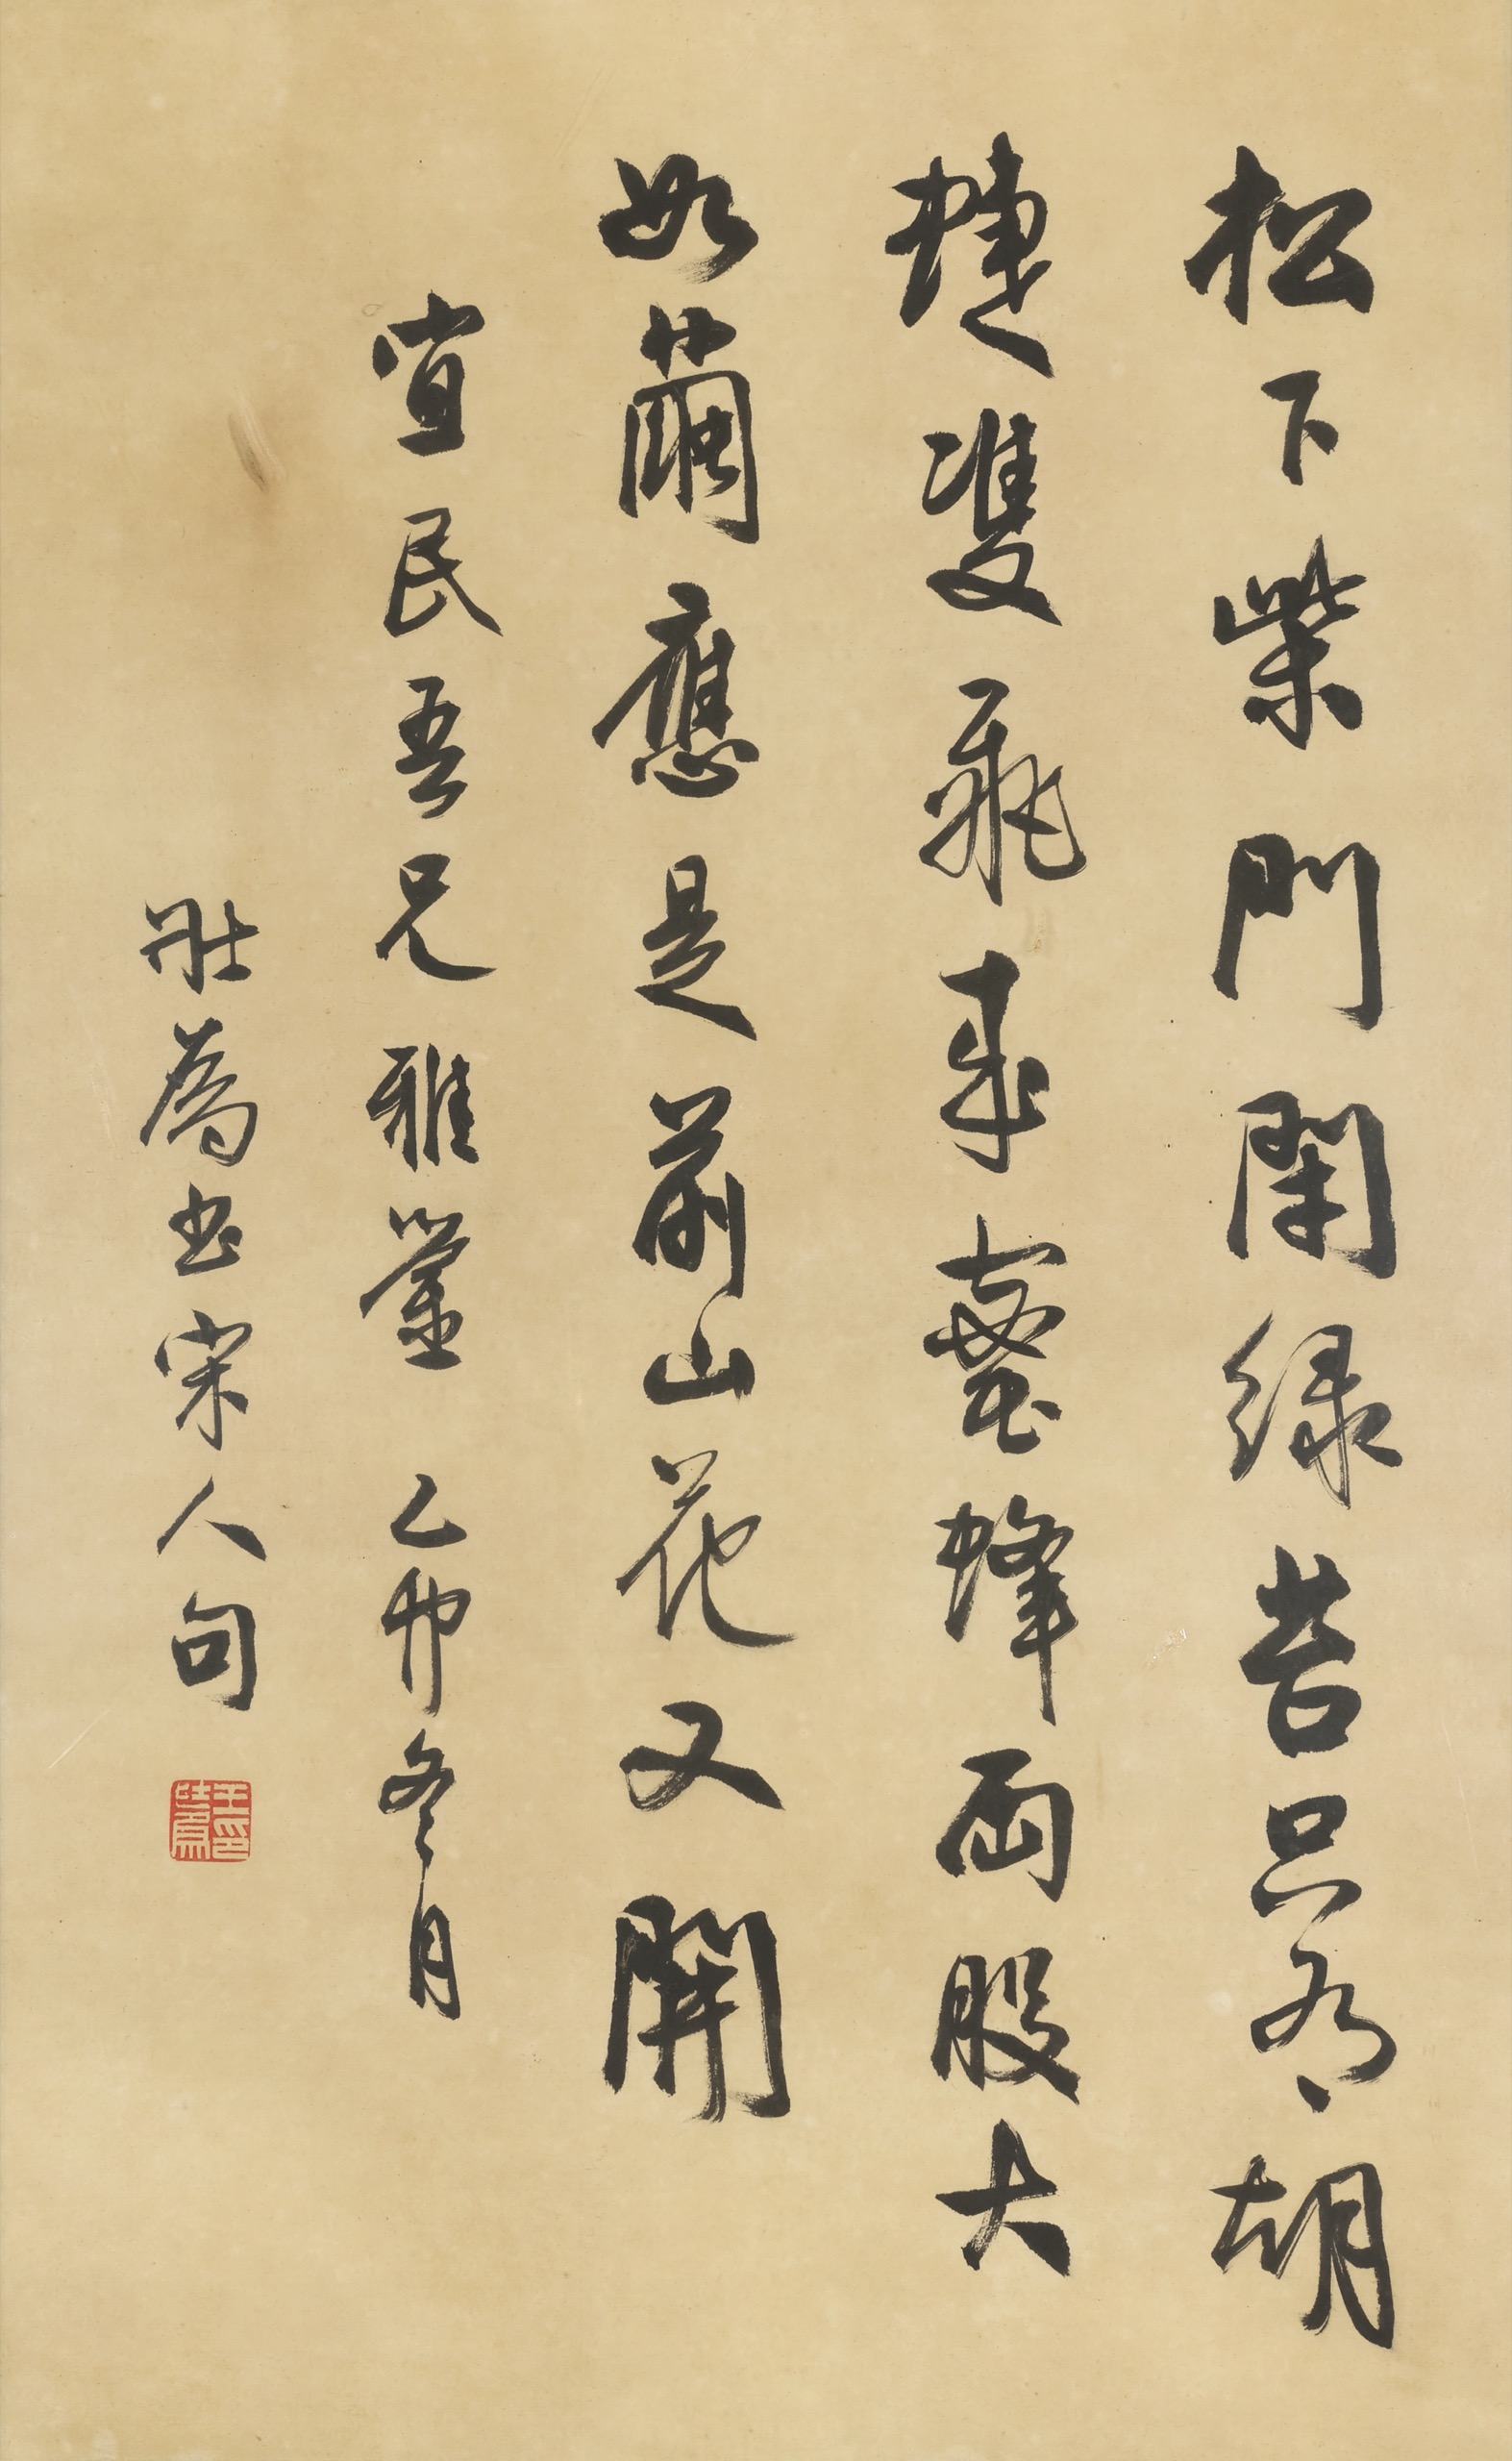 松下柴門閉綠苔只有胡
蜨雙飛來蜜蜂兩股大
如繭應是前山花又開
宜民吾兄雅鑒 乙卯冬月
壯為書宋人句
王壯為印